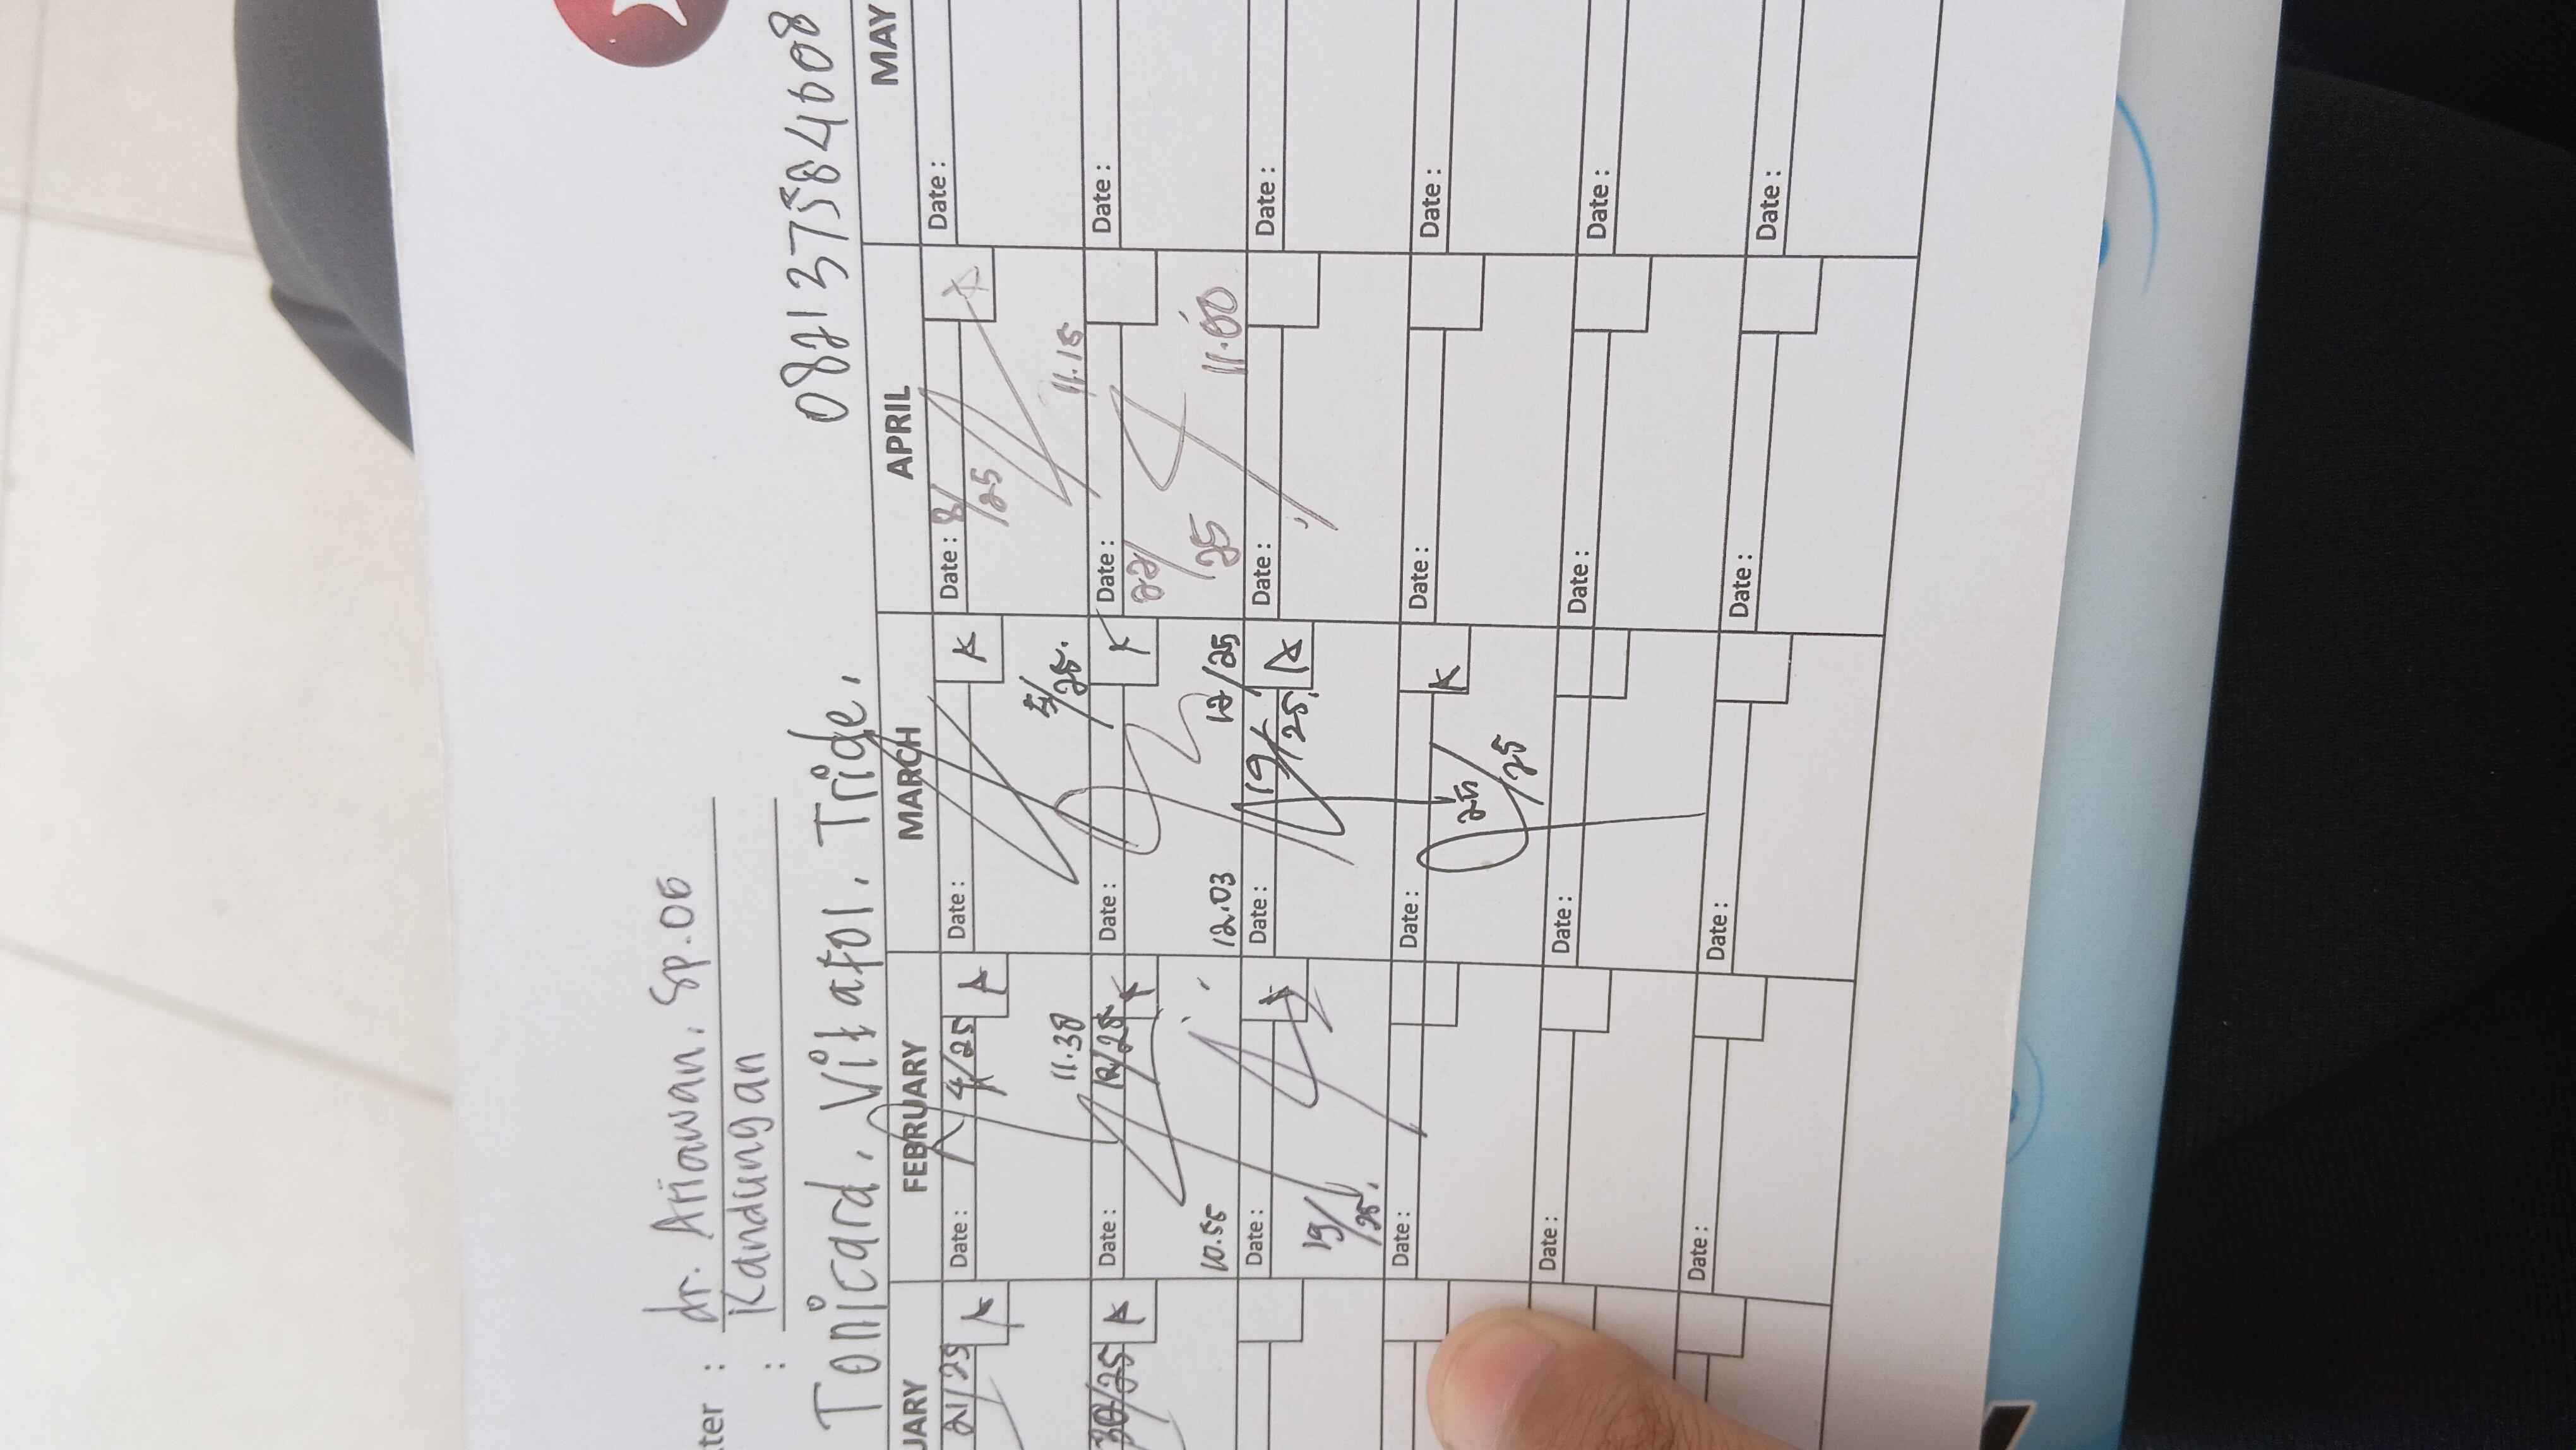 ter : dr. Ariawan. Sp.OG
: Kandungan
Tonicard. Vitafol. Tride.
082137584608
UARY FEBRUARY MARCH APRIL MAY
21/25 K Date : 4/25 K Date : K Date : 8/25 Date :
11.38 5/25. 11.15
30/25 K Date : 12/25 K Date : K Date : 22/25 Date :
10.55 12.03 12/25 11.00
Date : Date : 19/25. K Date : Date :
19/25.
Date : Date : K Date : Date :
25/25
Date : Date : Date : Date :
Date : Date : Date : Date :